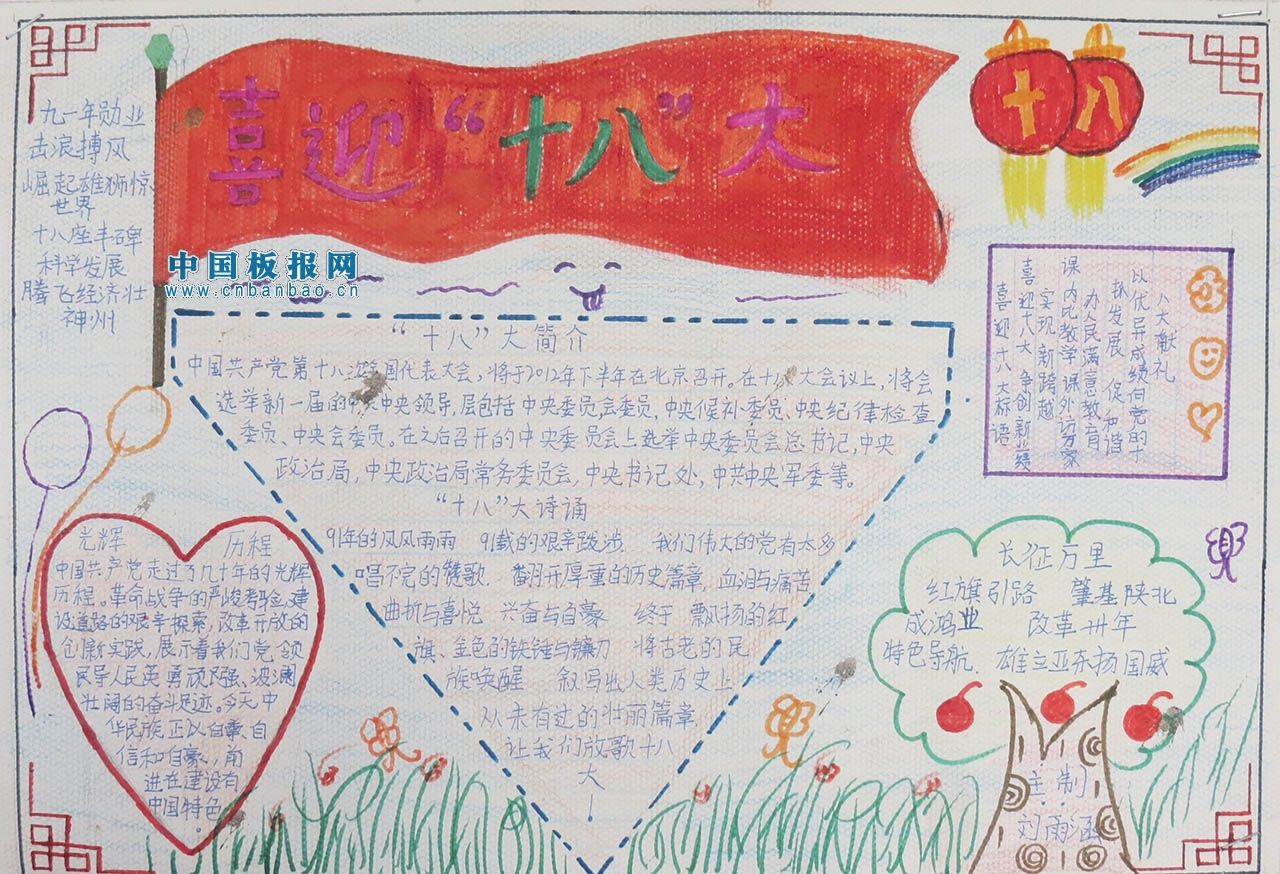 喜迎“十八”大
十八
九一年勋业
击浪搏风
崛起雄狮惊
世界
十八座丰碑
科学发展
腾飞经济壮
神州
中国板报网
www.cnbanbao.cn
“十八”大简介
中国共产党第十八次全国代表大会,将于2012年下半年在北京召开。在十八大会议上,将会
选举新一届的中共中央领导,层包括中央委员会委员,中央候补委员、中央纪律检查
委员、中央会委员。在之后召开的中央委员会上选举中央委员会总书记,中央
政治局,中央政治局常务委员会,中央书记处,中共中央军委等。
“十八”大诗诵
91年的风风雨雨 91载的艰辛跋涉 我们伟大的党有太多
唱不完的赞歌. 翻开厚重的历史篇章, 血泪与痛苦
曲折与喜悦 兴奋与自豪 终于 飘扬的红
旗、金色的铁锤与镰刀 将古老的民
族唤醒 叙写出人类历史上
从未有过的壮丽篇章
让我们放歌十八
大!
喜迎十八大标语
喜迎十八大 争创新业绩
实现新跨越
课内比教学 课外访万家
办人民满意教育
抓发展 促和谐
以优异成绩向党的十
八大献礼
光辉 历程
中国共产党走过了九十年的光辉
历程。革命战争的严峻考验,建
设道路的艰辛探索,改革开放的
创新实践,展示着我们党领
民导人民英勇顽强、波澜
壮阔的奋斗足迹。今天中
华民族正以自豪自
信和自豪,前
进在建设有
中国特色
长征万里
红旗引路 肇基陕北
成鸿业 改革卅年
特色导航. 雄立亚东扬国威
主制
刘雨涵